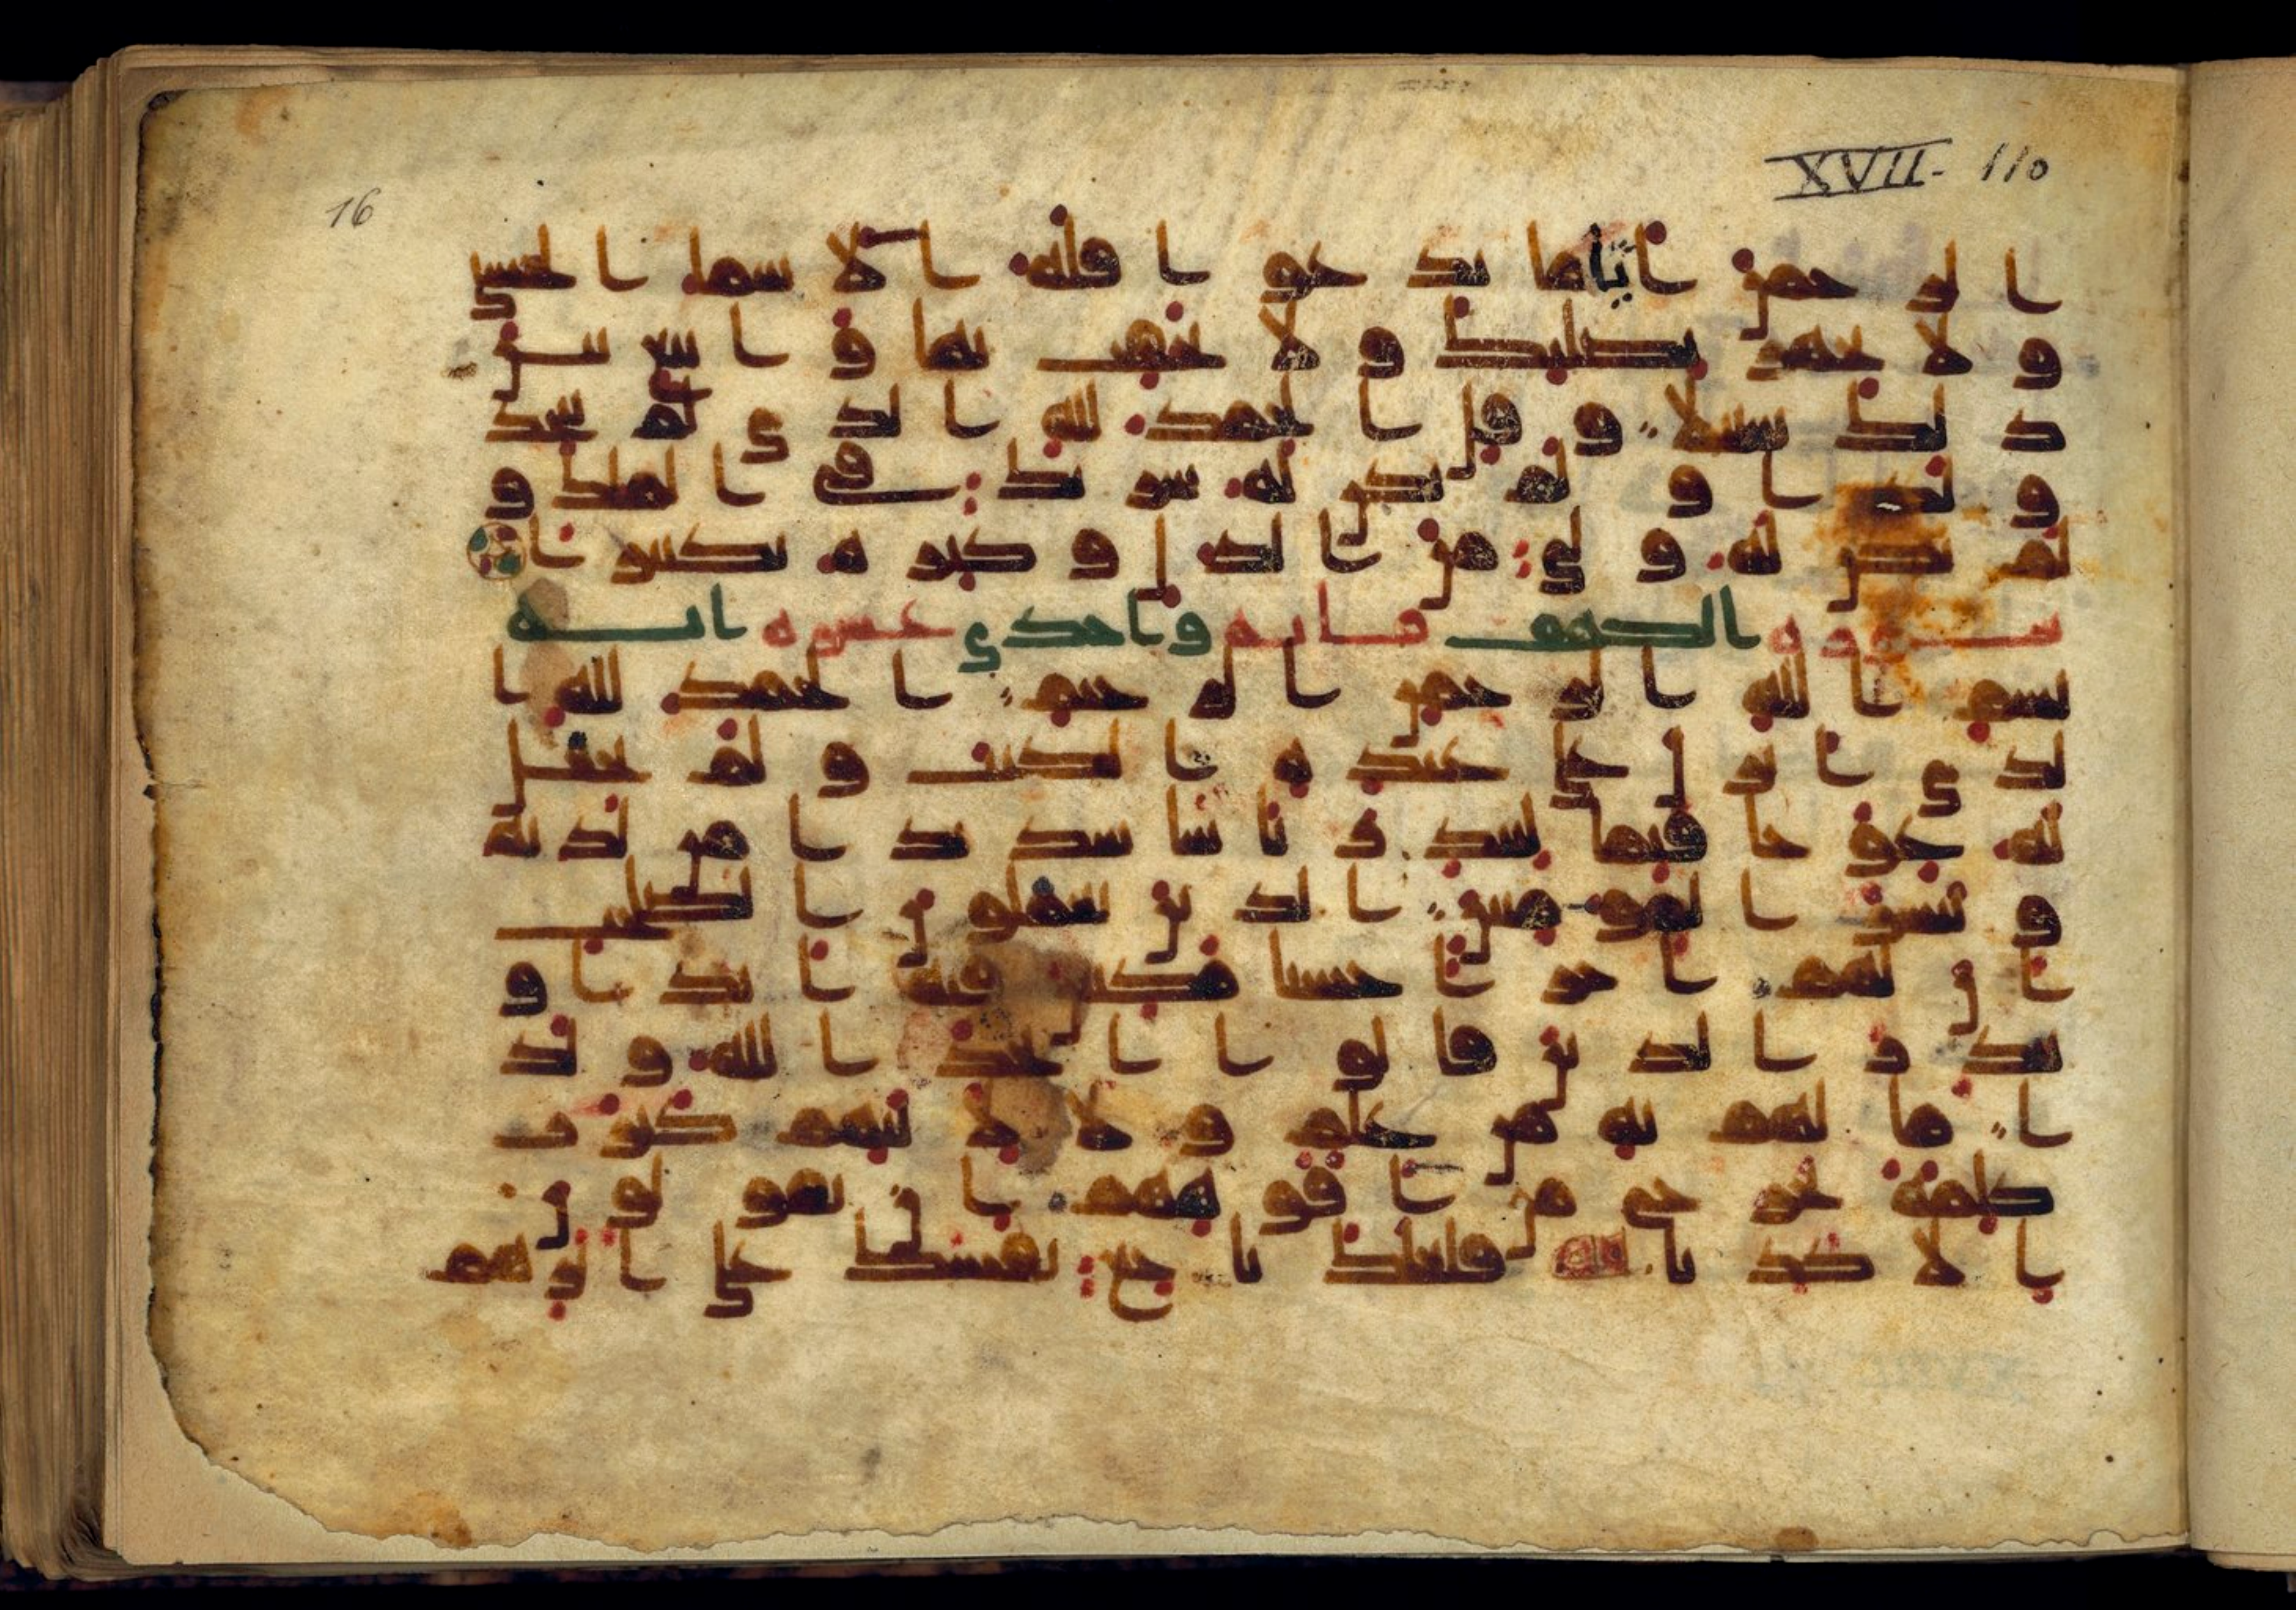 16
XVII- 110
الرحمن اياما تدعوا فله الاسما الحسنى
ولا تجهر بصلتك ولا تخفت بها وابتغ بين
ذلك سبيلا وقل الحمد لله الذي لم يتخذ
ولدا ولم يكن له شريك في الملك و
لم يكن له ولي من الذل وكبره تكبيرا
سورة الكهف مايه واحدى عشره ايه
بسم الله الرحمن الرحيم الحمد لله ا
لذي انزل على عبده الكتب ولم يجعل
له عوجا قيما لينذر باسا شديدا من لدنه
ويبشر المومنين الذين يعملون الصلحت
ان لهم اجرا حسنا مكثين فيه ابدا و
ينذر الذين قالوا اتخذ الله ولد
ا ما لهم به من علم ولا لابيهم كبرت
كلمة تخرج من افوههم ان يقولون
الا كذبا فلعلك بخع نفسك على اثرهم